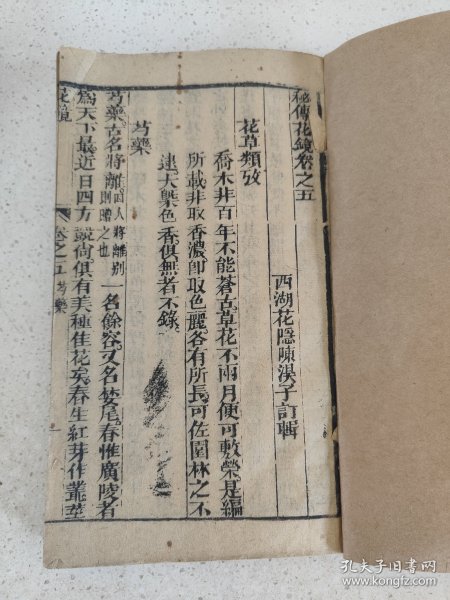 秘傳花鏡卷之五
西湖花隱陳淏子訂輯
花草類攷
喬木非百年不能蒼古草花不兩月便可敷榮是編
所載非取香濃即取色麗各有所長可佐園林之不
逮大槩色香俱無者不錄
芍藥
芍藥古名將離因人將離別則贈之也一名餘容又名婪尾春惟廣陵者
為天下最近日四方競尚俱有美種佳花矣春生紅芽作叢莖
花鏡 卷之五 芍藥
孔夫子旧书网
www.kongfz.com